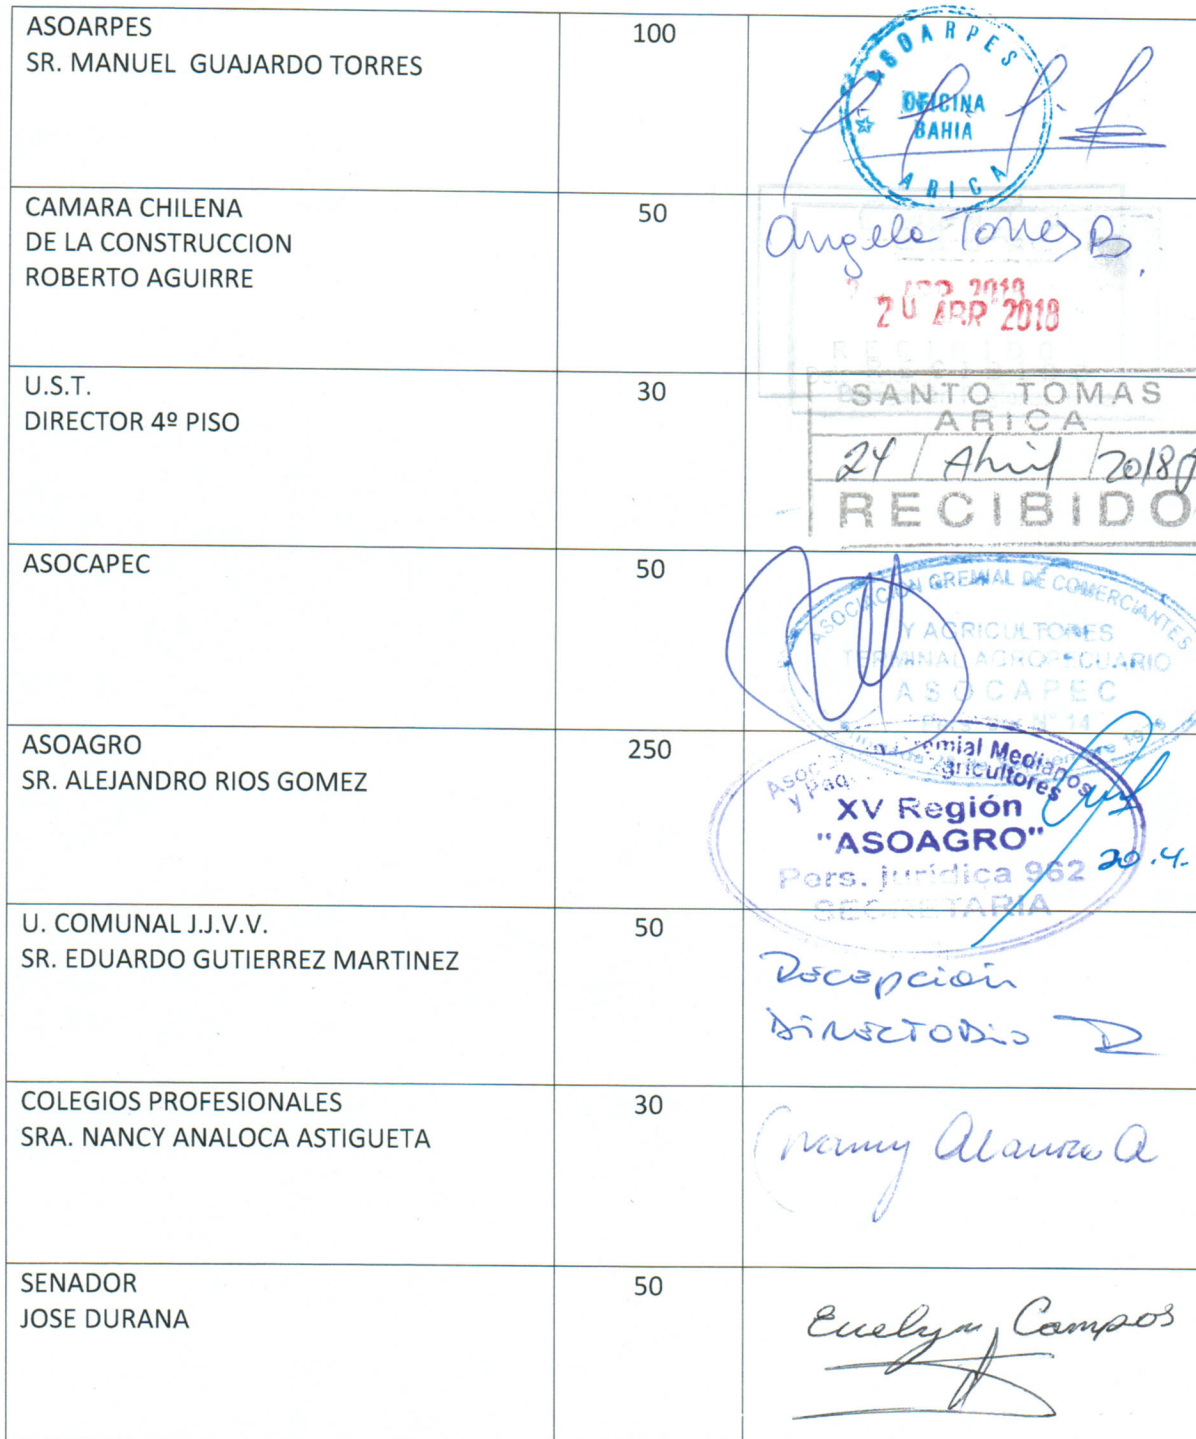 ASOARPES
SR. MANUEL GUAJARDO TORRES
100
ASOARPES
OFICINA
BAHIA
ARICA
CAMARA CHILENA
DE LA CONSTRUCCION
ROBERTO AGUIRRE
50
Angela Torres B.
20 ABR 2018
U.S.T.
DIRECTOR 4º PISO
30
SANTO TOMAS
ARICA
24 / Abril / 2018
RECIBIDO
ASOCAPEC
50
ASOCIACION GREMIAL DE COMERCIANTES
Y AGRICULTORES
TERMINAL AGROPECUARIO
ASOCAPEC
Nº 14
ASOAGRO
SR. ALEJANDRO RIOS GOMEZ
250
Medianos
Agricultores
XV Región
"ASOAGRO"
Pers. jurídica 962
SECRETARIA
20.4.
U. COMUNAL J.J.V.V.
SR. EDUARDO GUTIERREZ MARTINEZ
50
Recepción
Directorio
COLEGIOS PROFESIONALES
SRA. NANCY ANALOCA ASTIGUETA
30
Nancy
SENADOR
JOSE DURANA
50
Evelyn Campos